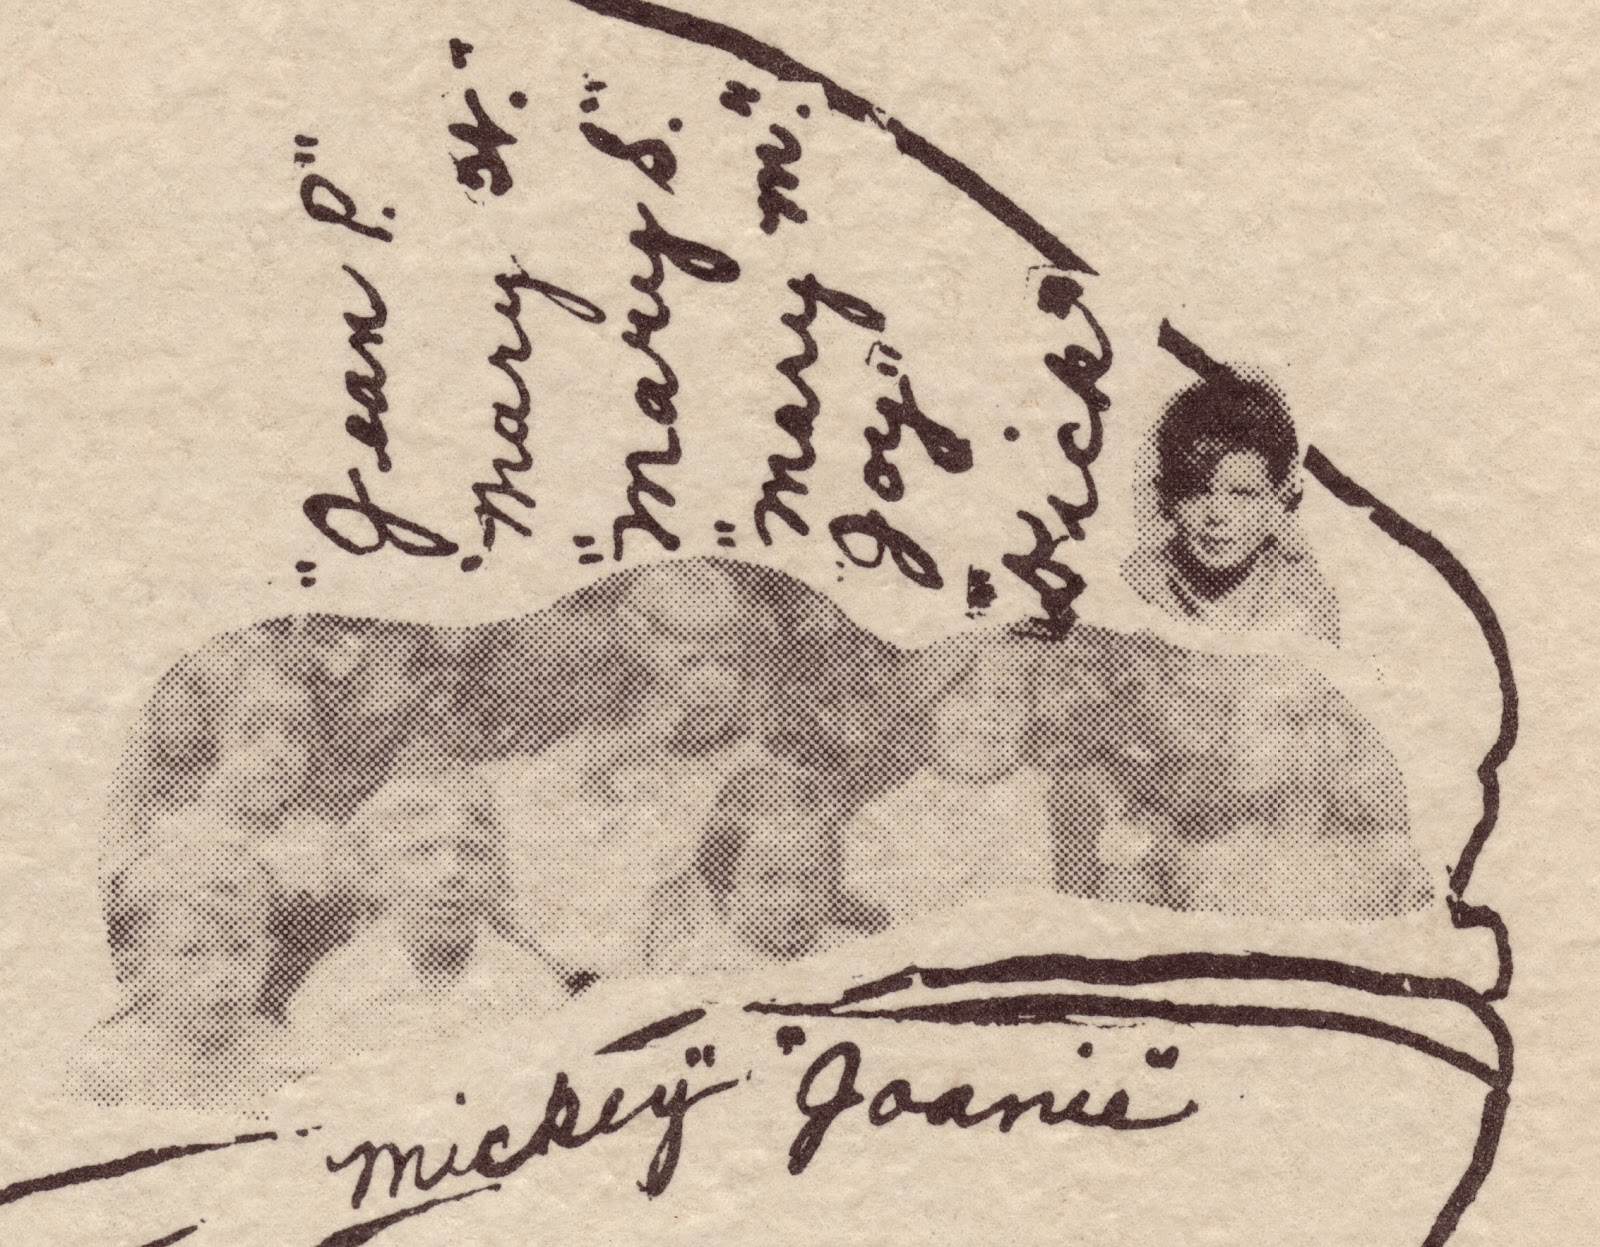 "Jean P."
"Mary H."
"Mary S."
"Mary M."
Joy"
"Vick"
Mickey" "Joanie"